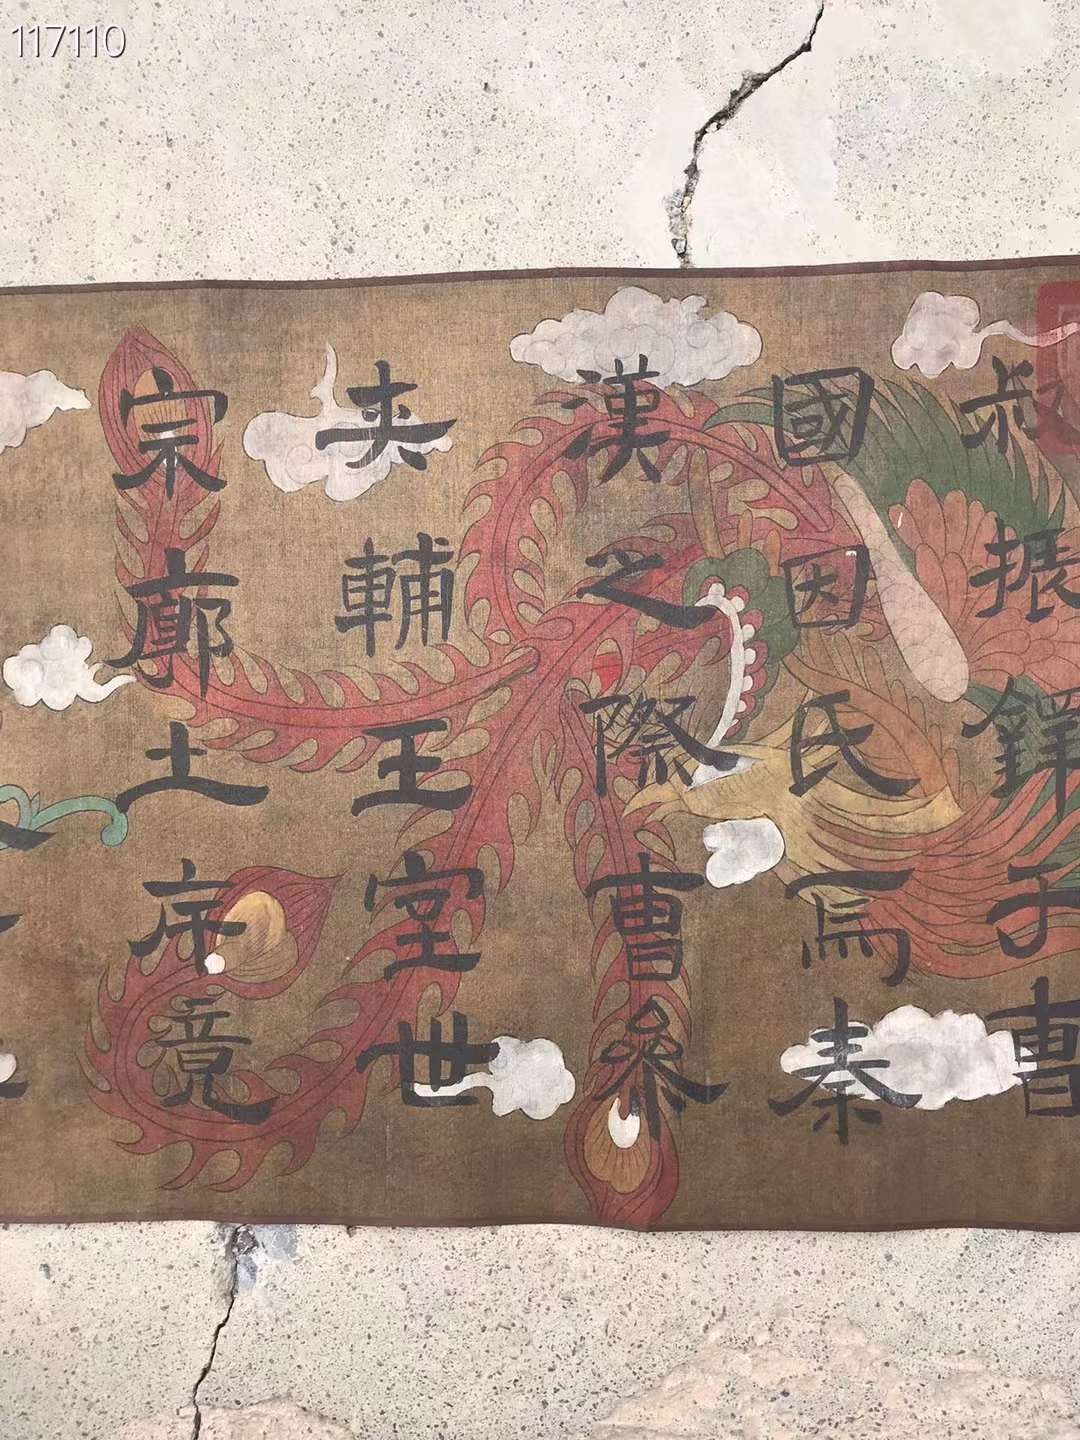 117110
叔振鐸于曹
國因氏焉秦
漢之際曹參
夾輔王室世
宗廓土斥竟